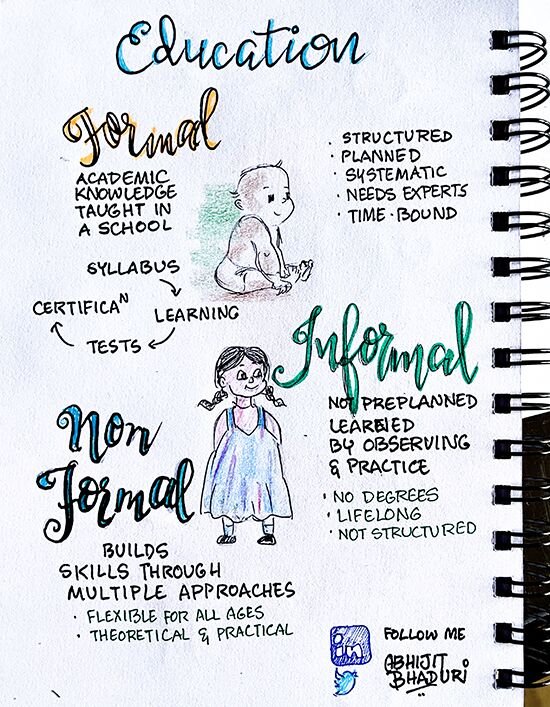 Education
Formal
ACADEMIC
KNOWLEDGE
TAUGHT IN
A SCHOOL
SYLLABUS
LEARNING
TESTS
CERTIFICAᴺ
· STRUCTURED
· PLANNED
· SYSTEMATIC
· NEEDS EXPERTS
· TIME-BOUND
Informal
NOT PREPLANNED
LEARNED
BY OBSERVING
& PRACTICE
· NO DEGREES
· LIFELONG
· NOT STRUCTURED
Non
Formal
BUILDS
SKILLS THROUGH
MULTIPLE APPROACHES
· FLEXIBLE FOR ALL AGES
· THEORETICAL & PRACTICAL
in
FOLLOW ME
ABHIJIT
BHADURI